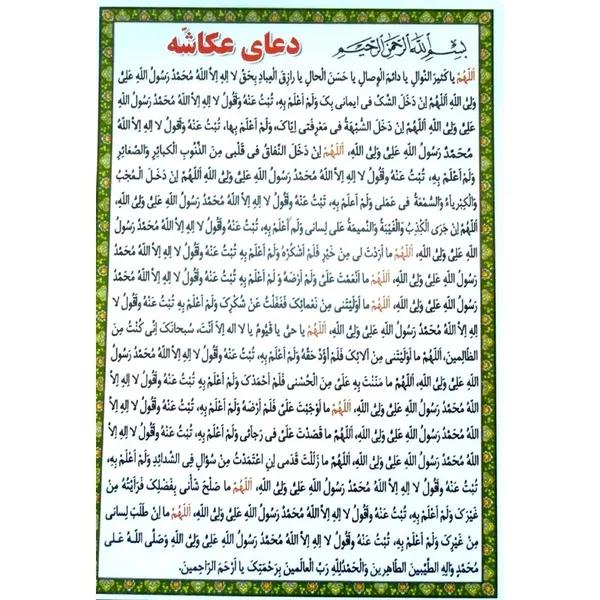 بِسْمِ اللهِ الرَّحْمنِ الرَّحیمِ
دعای عکاشّه
اَللّهُمَّ یا کَثیرَ النَّوالِ یا دائِمَ الْوِصالِ یا حَسَنَ الْحالِ یا رازِقَ الْعِبادِ بِحَقِّ لا اِلهَ اِلاَّ اللهُ مُحَمَّدٌ رَسُولُ اللهِ عَلِیٌّ
وَلِیُّ اللهِ اَللّهُمَّ اِنْ دَخَلَ الشَّکُّ فی ایمانی بِکَ وَلَمْ اَعْلَمْ بِهِ، تُبْتُ عَنْهُ وَاَقُولُ لا اِلهَ اِلاَّ اللهُ مُحَمَّدٌ رَسُولُ اللهِ
عَلِیٌّ وَلِیُّ اللهِ اَللّهُمَّ اِنْ دَخَلَ الشُّبْهَةُ فی مَعْرِفَتی اِیّاکَ، وَلَمْ اَعْلَمْ بِها، تُبْتُ عَنْهُ وَاَقُولُ لا اِلهَ اِلاَّ اللهُ
مُحَمَّدٌ رَسُولُ اللهِ عَلِیٌّ وَلِیُّ اللهِ، اَللّهُمَّ اِنْ دَخَلَ النِّفاقُ فی قَلْبی مِنَ الذُّنُوبِ الْکَبائِرِ وَالصَّغائِرِ
وَلَمْ اَعْلَمْ بِهِ، تُبْتُ عَنْهُ وَاَقُولُ لا اِلهَ اِلاَّ اللهُ مُحَمَّدٌ رَسُولُ اللهِ عَلِیٌّ وَلِیُّ اللهِ اَللّهُمَّ اِنْ دَخَلَ الْعُجْبُ
وَالْکِبْرِیاءُ وَالسُّمْعَةُ فی عَمَلی وَلَمْ اَعْلَمْ بِهِ، تُبْتُ عَنْهُ وَاَقُولُ لا اِلهَ اِلاَّ اللهُ مُحَمَّدٌ رَسُولُ اللهِ عَلِیٌّ وَلِیُّ اللهِ،
اَللّهُمَّ اِنْ جَرَی الْکِذْبُ وَالْغَیْبَةُ وَالنَّمیمَةُ عَلی لِسانی وَلَمْ اَعْلَمْ بِهِ، تُبْتُ عَنْهُ وَاَقُولُ لا اِلهَ اِلاَّ اللهُ مُحَمَّدٌ رَسُولُ
اللهِ عَلِیٌّ وَلِیُّ اللهِ، اَللّهُمَّ ما اَرَدْتَ لی مِنْ خَیْرٍ فَلَمْ اَشْکُرْهُ وَلَمْ اَعْلَمْ بِهِ تُبْتُ عَنْهُ وَاَقُولُ لا اِلهَ اِلاَّ اللهُ مُحَمَّدٌ
رَسُولُ اللهِ عَلِیٌّ وَلِیُّ اللهِ، اَللّهُمَّ ما اَنْعَمْتَ عَلَیَّ وَلَمْ اَرْضَهُ وَ لَمْ اَعْلَمْ بِهِ تُبْتُ عَنْهُ وَاَقُولُ لا اِلهَ اِلاَّ اللهُ مُحَمَّدٌ
رَسُولُ اللهِ عَلِیٌّ وَلِیُّ اللهِ، اَللّهُمَّ ما اَوْلَیْتَنی مِنْ نَعْمائِکَ فَغَفَلْتُ عَنْ شُکْرِکَ وَلَمْ اَعْلَمْ بِهِ، تُبْتُ عَنْهُ وَاَقُولُ
لا اِلهَ اِلاَّ اللهُ مُحَمَّدٌ رَسُولُ اللهِ عَلِیٌّ وَلِیُّ اللهِ، اَللّهُمَّ یا حَیُّ یا قَیُّومُ یا لا اله اِلاّ اَنْتَ، سُبحانَکَ اِنّی کُنْتُ مِنَ
الظّالِمینَ، اَللّهُمَّ ما اَوْلَیْتَنی مِنْ آلائِکَ فَلَمْ اُؤَدِّ حَقَّهُ وَلَمْ اَعْلَمْ بِهِ، تُبْتُ عَنْهُ وَاَقُولُ لا اِلهَ اِلاَّ اللهُ مُحَمَّدٌ رَسُولُ
اللهِ عَلِیٌّ وَلِیُّ اللهِ، اَللّهُمَّ ما مَنَنْتَ بِهِ عَلَیَّ مِنَ الْحُسْنی فَلَمْ اَحْمَدْکَ وَلَمْ اَعْلَمْ بِهِ، تُبْتُ عَنْهُ وَاَقُولُ لا اِلهَ اِلاَّ
اللهُ مُحَمَّدٌ رَسُولُ اللهِ عَلِیٌّ وَلِیُّ اللهِ، اَللّهُمَّ ما اَوْجَبْتَ عَلَیَّ فَلَمْ اَرْضَهُ وَلَمْ اَعْلَمْ بِهِ، تُبْتُ عَنْهُ وَاَقُولُ لا اِلهَ اِلاَّ
اللهُ مُحَمَّدٌ رَسُولُ اللهِ عَلِیٌّ وَلِیُّ اللهِ، اَللّهُمَّ ما قَصَدْتَ عَلَیَّ فی رَجائی وَلَمْ اَعْلَمْ بِهِ، تُبْتُ عَنْهُ وَاَقُولُ لا اِلهَ اِلاَّ
اللهُ مُحَمَّدٌ رَسُولُ اللهِ عَلِیٌّ وَلِیُّ اللهِ، اَللّهُمَّ ما زَلَلْتَ قَدَمی اِنِ اعْتَمَدْتُ مِنْ سُؤالٍ فِی الشَّدائِدِ وَلَمْ اَعْلَمْ بِهِ،
تُبْتُ عَنْهُ وَاَقُولُ لا اِلهَ اِلاَّ اللهُ مُحَمَّدٌ رَسُولُ اللهِ عَلِیٌّ وَلِیُّ اللهِ، اَللّهُمَّ ما صَلَحَ شَأْنی بِفَضْلِکَ فَرَاَیْتُهُ مِنْ
غَیْرِکَ وَلَمْ اَعْلَمْ بِهِ، تُبْتُ عَنْهُ وَاَقُولُ لا اِلهَ اِلاَّ اللهُ مُحَمَّدٌ رَسُولُ اللهِ عَلِیٌّ وَلِیُّ اللهِ، اَللّهُمَّ ما اِنْ طَلَبَ لِسانی
مِنْ غَیْرِکَ وَلَمْ اَعْلَمْ بِهِ، تُبْتُ عَنْهُ وَاَقُولُ لا اِلهَ اِلاَّ اللهُ مُحَمَّدٌ رَسُولُ اللهِ عَلِیٌّ وَلِیُّ اللهِ وَصَلَّی اللهُ عَلی
مُحَمَّدٍ وَالِهِ الطَّیِّبینَ الطّاهِرینَ وَالْحَمْدُلِلّهِ رَبِّ الْعالَمینَ بِرَحْمَتِکَ یا اَرْحَمَ الرّاحِمینَ.